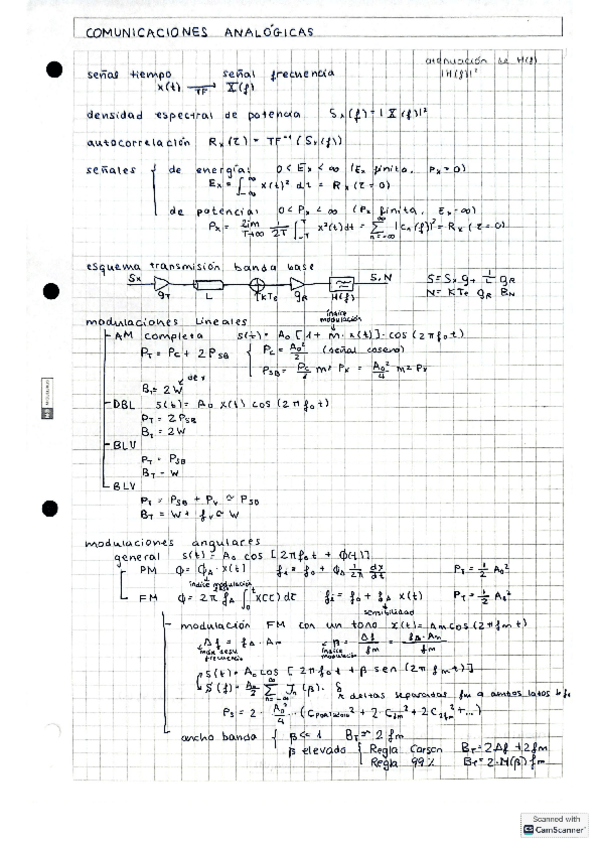 COMUNICACIONES ANALÓGICAS
atenuación de H(f)
|H(f)|²
señas tiempo señal frecuencia
x(t) → TF X(f)
densidad espectral de potencia Sx(f) = |X(f)|²
autocorrelación Rx(τ) = TF⁻¹(Sx(f))
señales { de energía: 0 < Ex < ∞ (Ex finito, Px = 0)
Ex = ∫_{-∞}^{∞} x(t)² dt = Rx(τ=0)
de potencia: 0 < Px < ∞ (Px finita, Ex = ∞)
Px = lim_{T→∞} 1/2T ∫_{-T}^{T} x²(t)dt = Σ_{n=-∞}^{∞} |Cn(f)|² = Rx(τ=0)
esquema transmisión banda base
Sx gT L KTe gR H(f) S, N
S = Sx gT 1/L gR
N = KTe gR BN
modulaciones lineales
índice modulación
AM completa s(t) = A₀ [1 + m·x(t)]·cos(2πf₀t)
PT = Pc + 2PSB { Pc = A₀²/2 (señal coseno)
PSB = Pc/2 m² Px = A₀²/4 m² Px
BT = 2W de x
DBL s(t) = A₀ x(t) cos(2πf₀t)
PT = 2PSB
BT = 2W
BLU
PT = PSB
BT = W
BLV
PT = PSB + PV ≃ PSB
BT = W + fV ≃ W
modulaciones angulares
general s(t) = A₀ cos[2πf₀t + ϕ(t)]
PM ϕ = ϕΔ · x(t) fi = f₀ + ϕΔ 1/2π dx/dt PT = 1/2 A₀²
índice modulación fase
FM ϕ = 2π fΔ ∫₀ᵗ x(τ) dτ fi = f₀ + fΔ x(t) PT = 1/2 A₀²
sensibilidad
modulación FM con un tono x(t) = Am cos(2πfmt)
Δf = fΔ · Am β = Δf/fm = fΔ·Am/fm
máx desv frecuencia índice modulación
s(t) = A₀ cos[2πf₀t + β sen(2πfmt)]
S(f) = A₀/2 Σ_{n=-∞}^{∞} Jn(β) · δ
deltas separadas fm a ambos lados de f₀
Ps = 2 · A₀²/4 ... (Cportadora² + 2·Cfm² + 2C2fm² + ...)
ancho banda { β << 1 BT ≃ 2fm
β elevado { Regla Carson BT = 2Δf + 2fm
Regla 99% BT = 2·M(β) fm
Scanned with
CamScanner